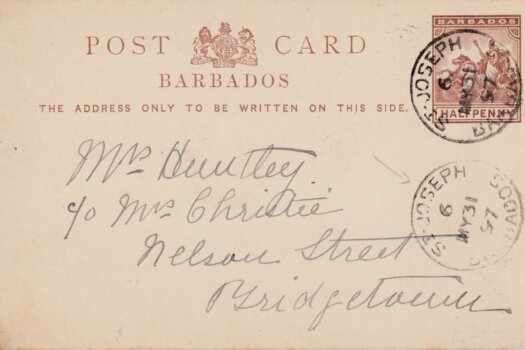 POST CARD
BARBADOS
THE ADDRESS ONLY TO BE WRITTEN ON THIS SIDE.
BARBADOS
HALFPENNY
ST. JOSEPH BARBADOS
6
MY 31
97
Mrs Huntley
c/o Mrs Christie
Nelson Street
Bridgetown
ST. JOSEPH BARBADOS
6
MY 31
97